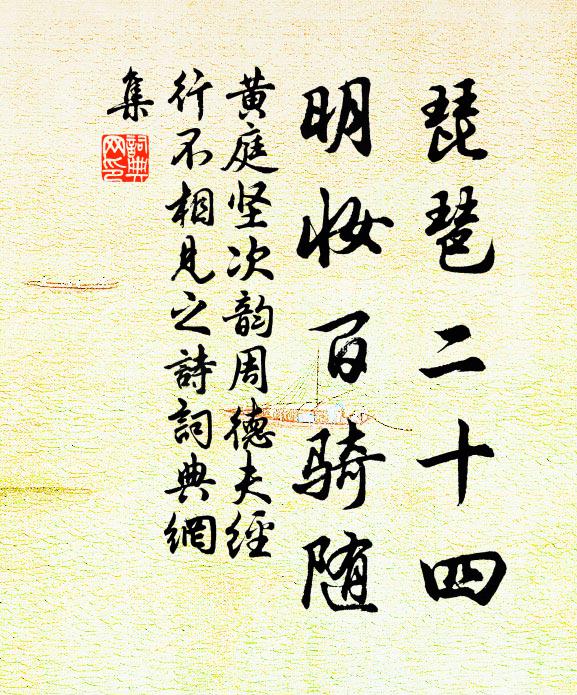 琵琶二十四
明妆百骑随
黄庭坚次韵周德夫經
行不相見之詩詞典網
集
詞典
网印